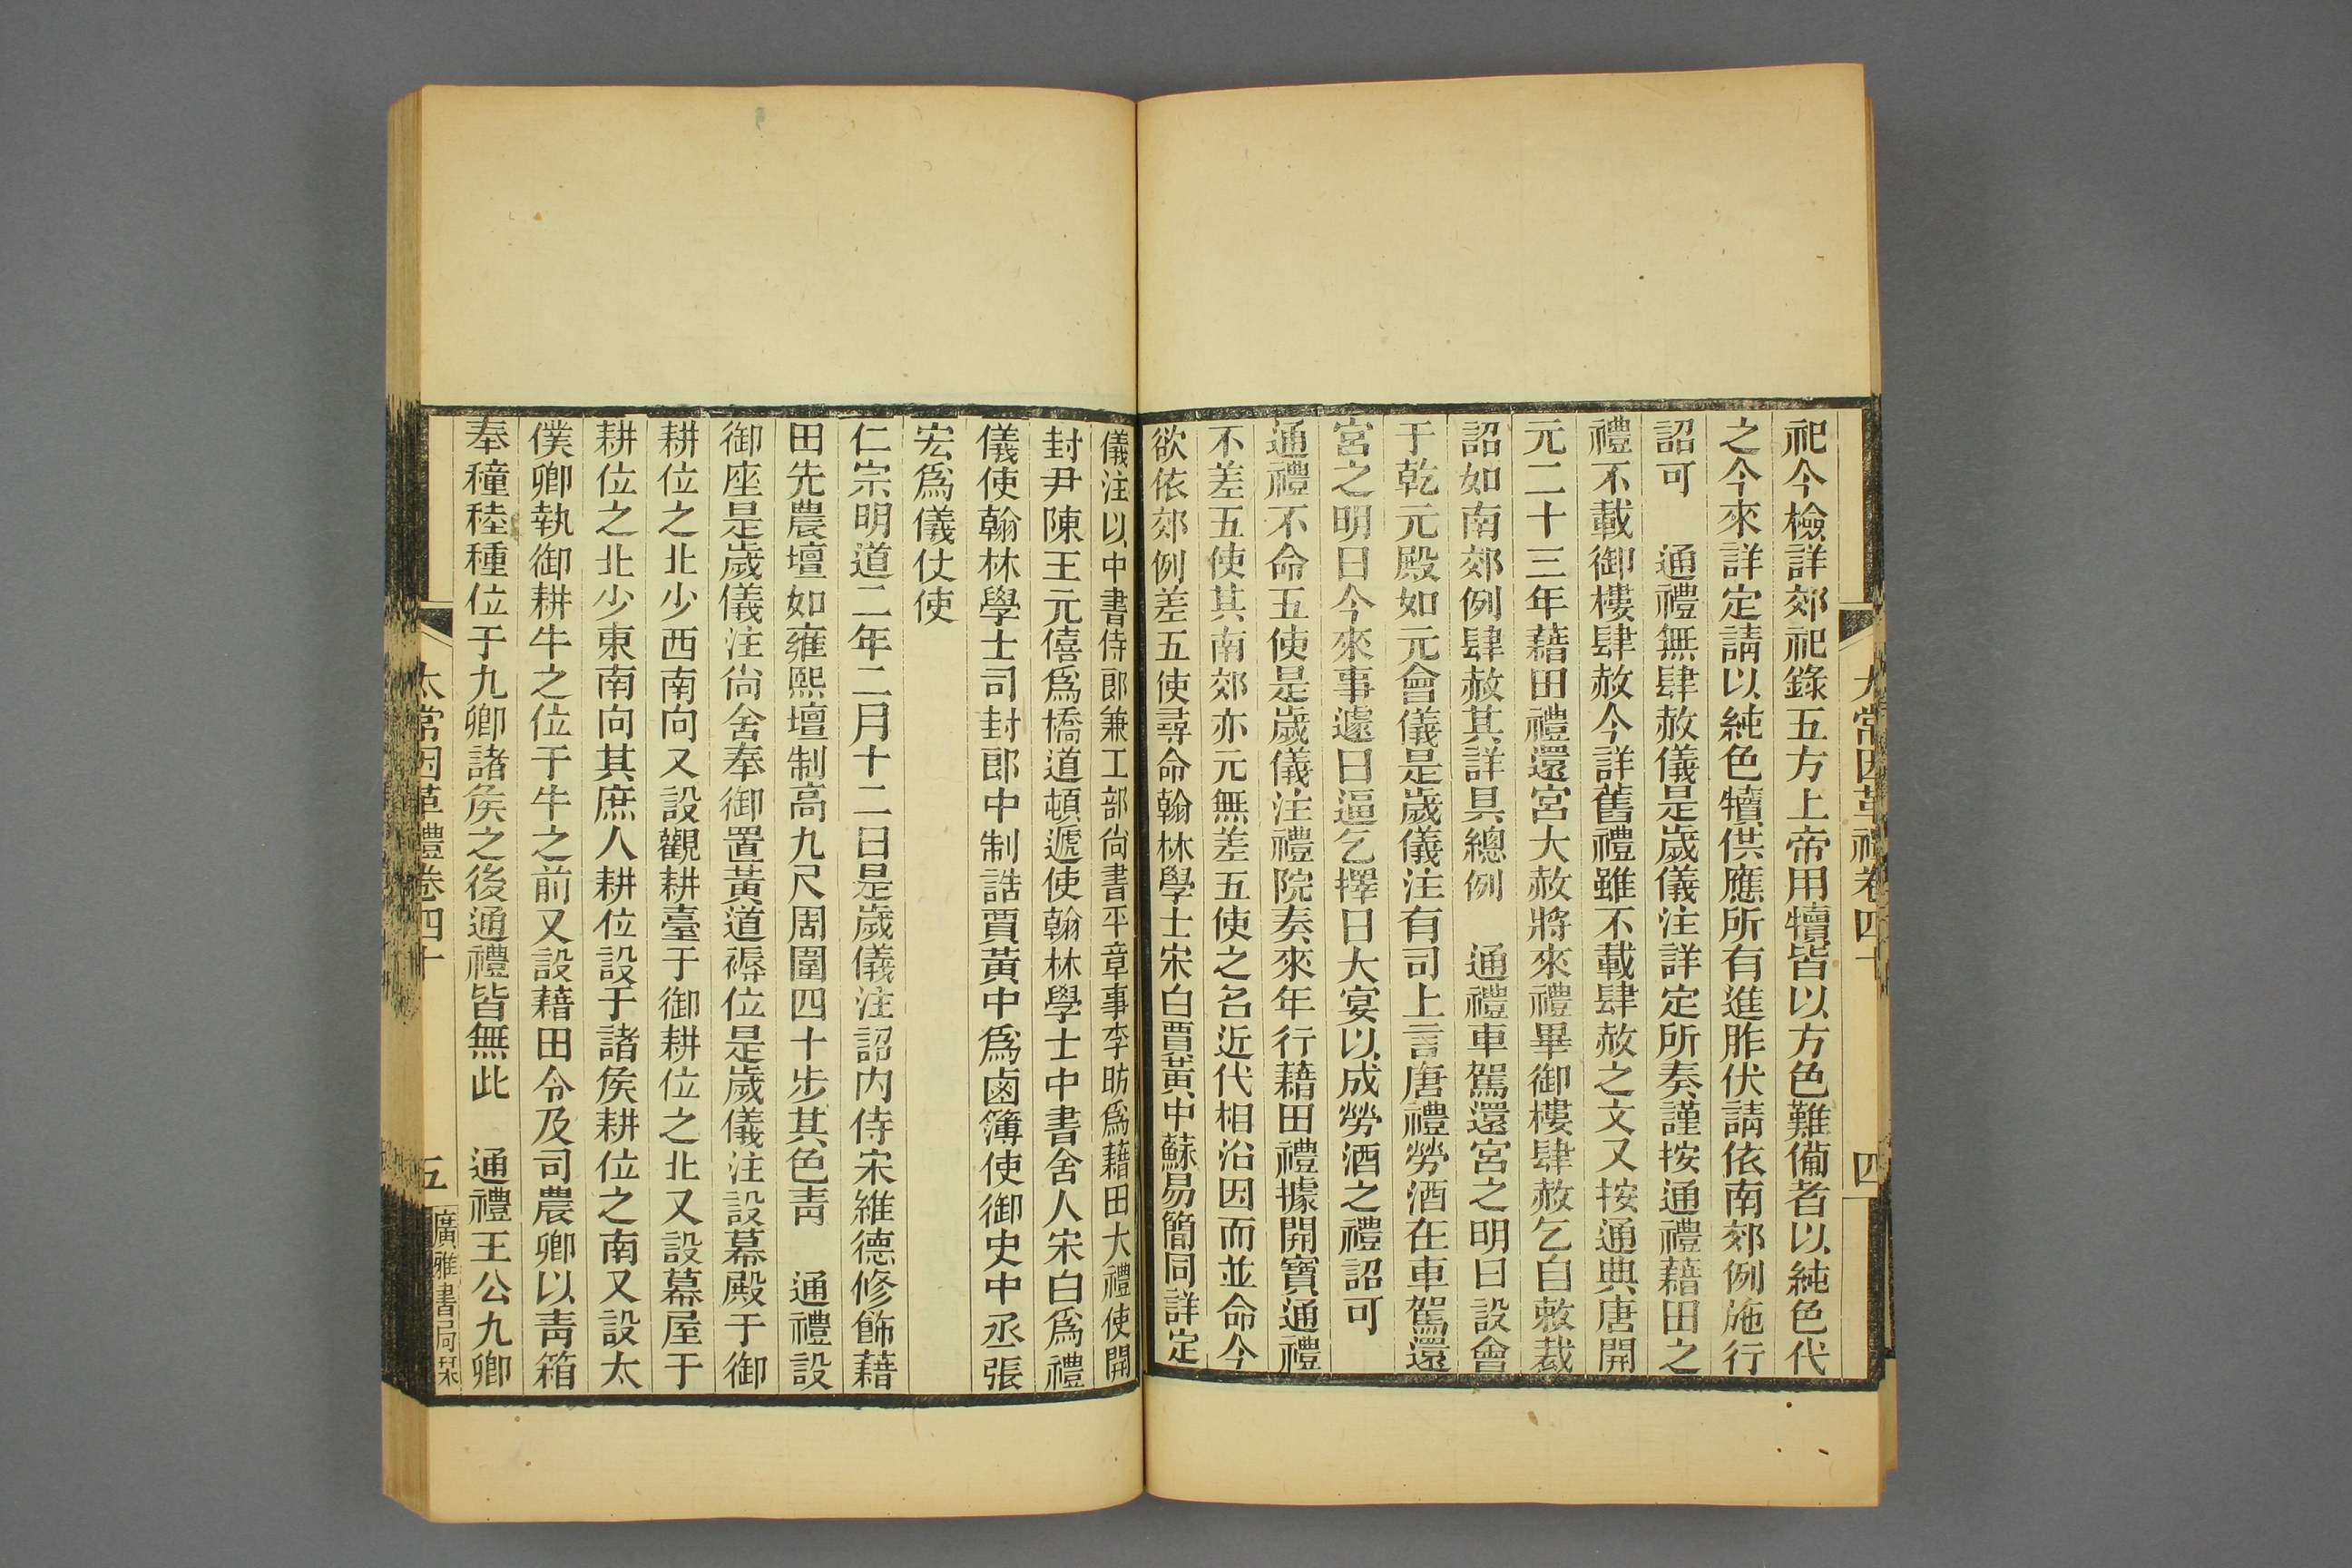 太常因革禮卷四十
四
祀今檢詳郊祀錄五方上帝用犢皆以方色難備者以純色代
之今來詳定請以純色犢供應所有進胙伏請依南郊例施行
詔可　通禮無肆赦儀是歲儀注詳定所奏謹按通禮藉田之
禮不載御樓肆赦今詳舊禮雖不載肆赦之文又按通典唐開
元二十三年藉田禮還宮大赦將來禮畢御樓肆赦乞自敕裁
詔如南郊例肆赦其詳具總例　通禮車駕還宮之明日設會
于乾元殿如元會儀是歲儀注有司上言唐禮勞酒在車駕還
宮之明日今來事遽日逼乞擇日大宴以成勞酒之禮詔可
通禮不命五使是歲儀注禮院奏來年行藉田禮據開寶通禮
不差五使其南郊亦元無差五使之名近代相沿因而並命今
欲依郊例差五使尋命翰林學士宋白賈黃中蘇易簡同詳定
儀注以中書侍郎兼工部尚書平章事李昉爲藉田大禮使開
封尹陳王元僖爲橋道頓遞使翰林學士中書舍人宋白爲禮
儀使翰林學士司封郎中制誥賈黃中爲鹵簿使御史中丞張
宏爲儀仗使
仁宗明道二年二月十二日是歲儀注詔內侍宋維德修飾藉
田先農壇如雍熙壇制高九尺周圍四十步其色青　通禮設
御座是歲儀注尚舍奉御置黃道褥位是歲儀注設幕殿于御
耕位之北少西南向又設觀耕臺于御耕位之北又設幕屋于
耕位之北少東南向其庶人耕位設于諸矦耕位之南又設太
僕卿執御耕牛之位于牛之前又設藉田令及司農卿以青箱
奉穜稑種位于九卿諸矦之後通禮皆無此　通禮王公九卿
太常因革禮卷四十
五
廣雅書局栞